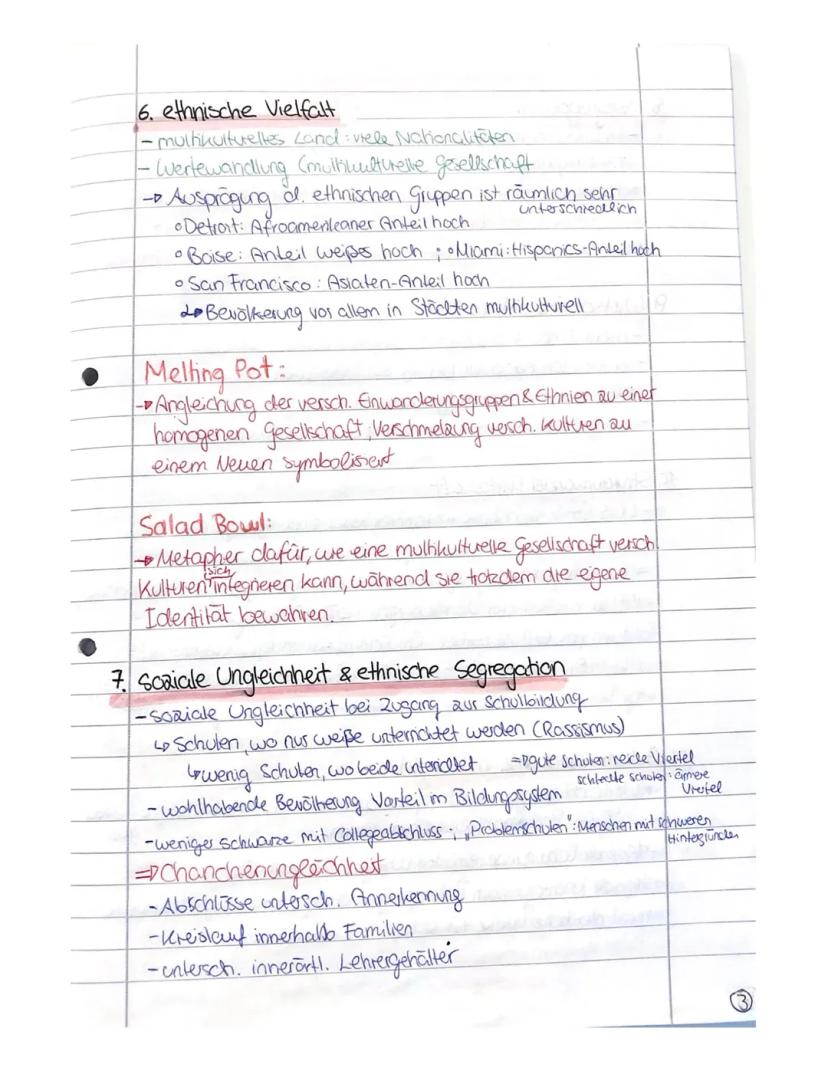 6. ethnische Vielfalt
- multikulturelles Land: viele Nationalitäten
- Wertewandlung (multikulturelle Gesellschaft
→ Ausprägung d. ethnischen Gruppen ist räumlich sehr
unterschiedlich
° Detroit: Afroamerikaner Anteil hoch
° Boise: Anteil weißes hoch ; ° Miami: Hispanics-Anteil hoch
° San Francisco: Asiaten-Anteil hoch
↳ Bevölkerung vor allem in Städten multikulturell
Melting Pot:
→ Angleichung der versch. Einwanderungsgruppen & Ethnien zu einer
homogenen Gesellschaft, Verschmelzung versch. Kulturen zu
einem Neuen symbolisiert
Salad Bowl:
→ Metapher dafür, wie eine multikulturelle Gesellschaft versch.
Kulturen sich integrieren kann, während sie trotzdem die eigene
Identität bewahren.
7. Soziale Ungleichheit & ethnische Segregation
- soziale Ungleichheit bei Zugang zur Schulbildung
↳ Schulen, wo nur weiße unterrichtet werden (Rassismus)
↳ wenig Schulen, wo beide unterrichtet ⇒ gute Schulen: reiche Viertel
schlechte Schulen: ärmere
Viertel
- wohlhabende Bevölkerung Vorteil im Bildungssystem
- weniger schwarze mit Collegeabschluss ; „Problemschulen": Menschen mit schweren
Hintergründen
⇒ Chanchenungleichheit
- Abschlüsse untersch. Annerkennung
- Kreislauf innerhalb Familien
- untersch. innerörtl. Lehrergehälter
3